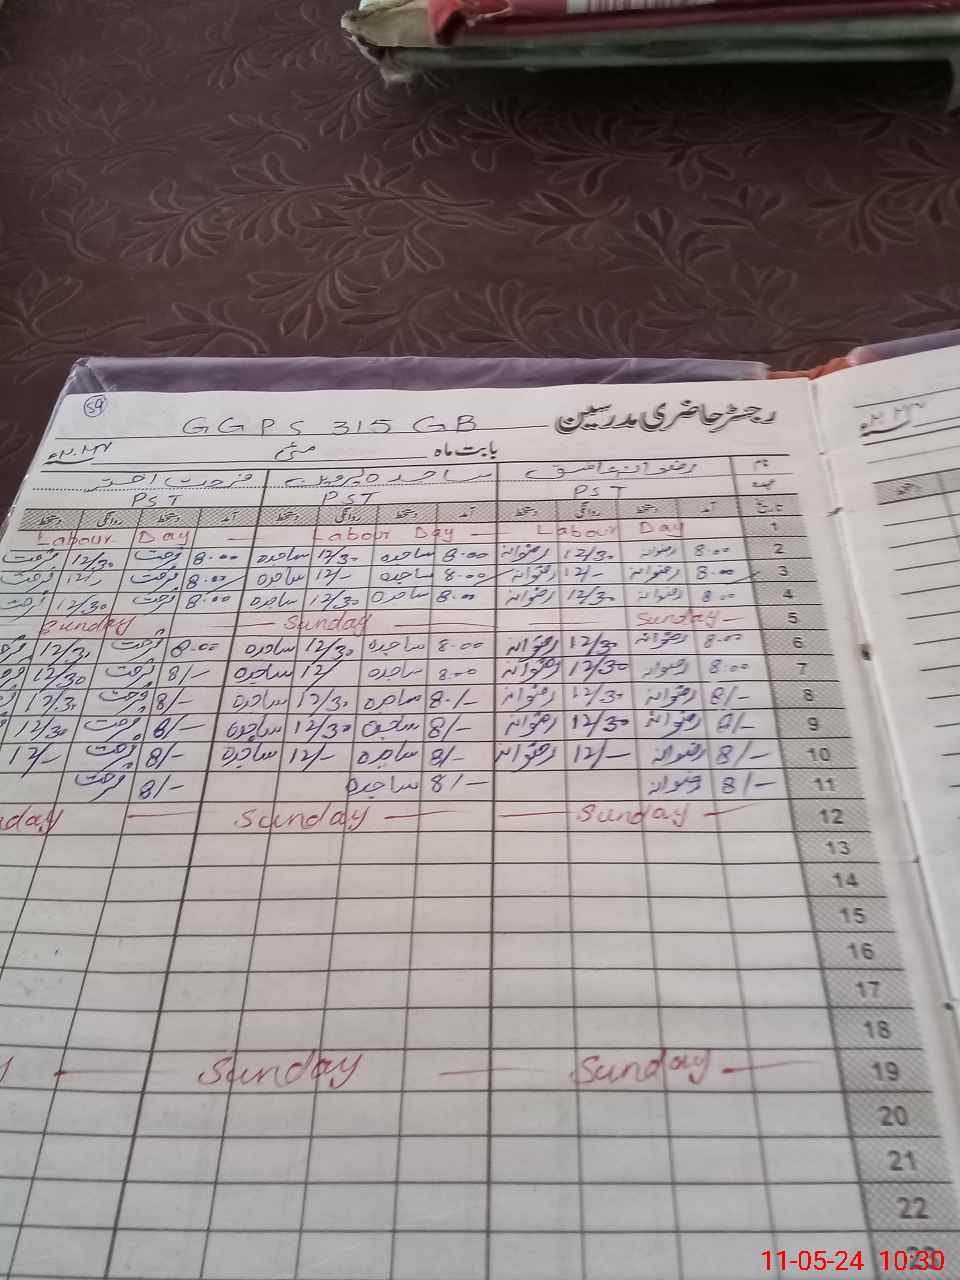 59
GGPS 315 GB رجسٹر حاضری مدرسین
بابت ماہ مئی ۲۰۲۴ء
نام رضوانہ ساجدہ پروین فرحت اختر
عہدہ PST PST PST
تاریخ آمد دستخط روانگی دستخط آمد دستخط روانگی دستخط آمد دستخط روانگی دستخط
1 Labour Day Labour Day Labour Day
2 8.00 رضوانہ 12/30 رضوانہ 8.00 ساجدہ 12/30 ساجدہ 8.00 فرحت 12/30 فرحت
3 8.00 رضوانہ 12/- رضوانہ 8.00 ساجدہ 12/- ساجدہ 8.00 فرحت 12/- فرحت
4 8.00 رضوانہ 12/30 رضوانہ 8.00 ساجدہ 12/30 ساجدہ 8.00 فرحت 12/30 فرحت
5 Sunday Sunday Sunday
6 8.00 رضوانہ 12/30 رضوانہ 8.00 ساجدہ 12/30 ساجدہ 8.00 فرحت 12/30
7 8.00 رضوانہ 12/30 رضوانہ 8.00 ساجدہ 12/ ساجدہ 8/- فرحت 12/30
8 8/- رضوانہ 12/30 رضوانہ 8./- ساجدہ 12/30 ساجدہ 8/- فرحت 12/30
9 8/- رضوانہ 12/30 رضوانہ 8/- ساجدہ 12/30 ساجدہ 8/- فرحت 12/30
10 8/- رضوانہ 12/- رضوانہ 8/- ساجدہ 12/- ساجدہ 8/- فرحت 12/-
11 8/- رضوانہ 8/- ساجدہ 8/- فرحت
12 Sunday Sunday day
13
14
15
16
17
18
19 Sunday Sunday
20
21
22
23
11-05-24 10:30